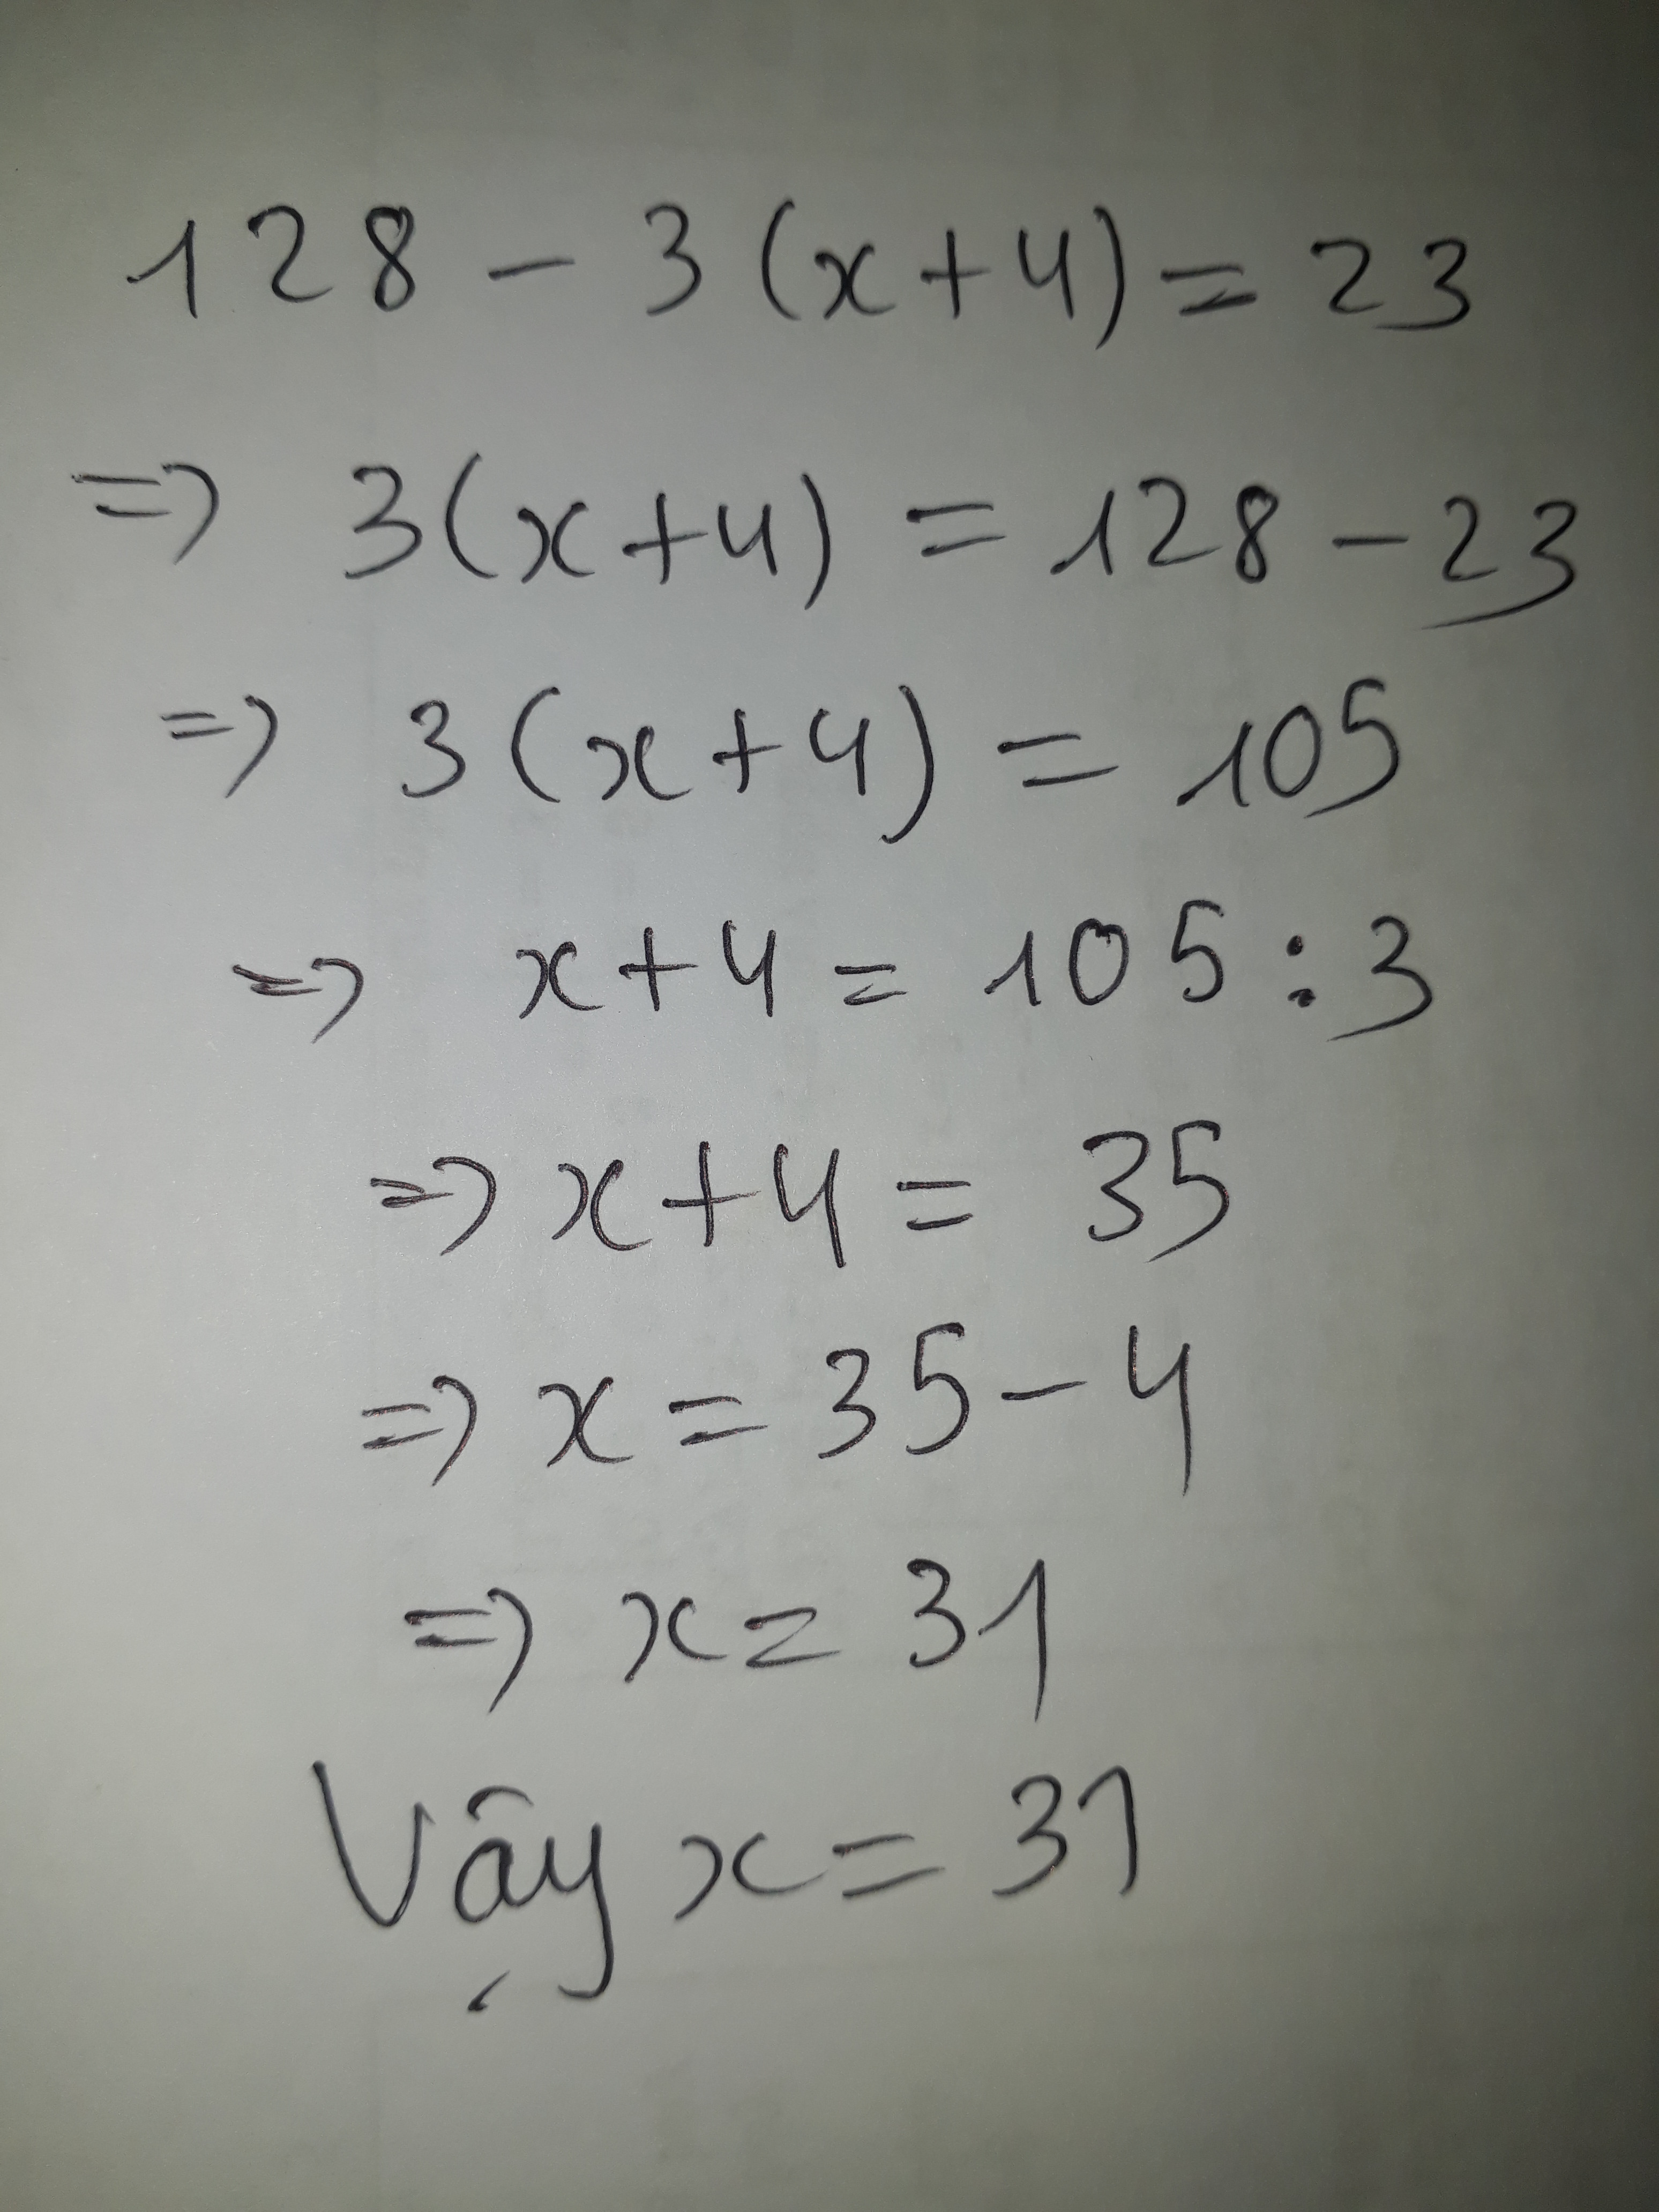 128 - 3 (x+4) = 23
=> 3(x+4) = 128 - 23
=> 3 (x+4) = 105
=> x+4 = 105 : 3
=> x+4 = 35
=> x = 35 - 4
=> x = 31
Vậy x = 31